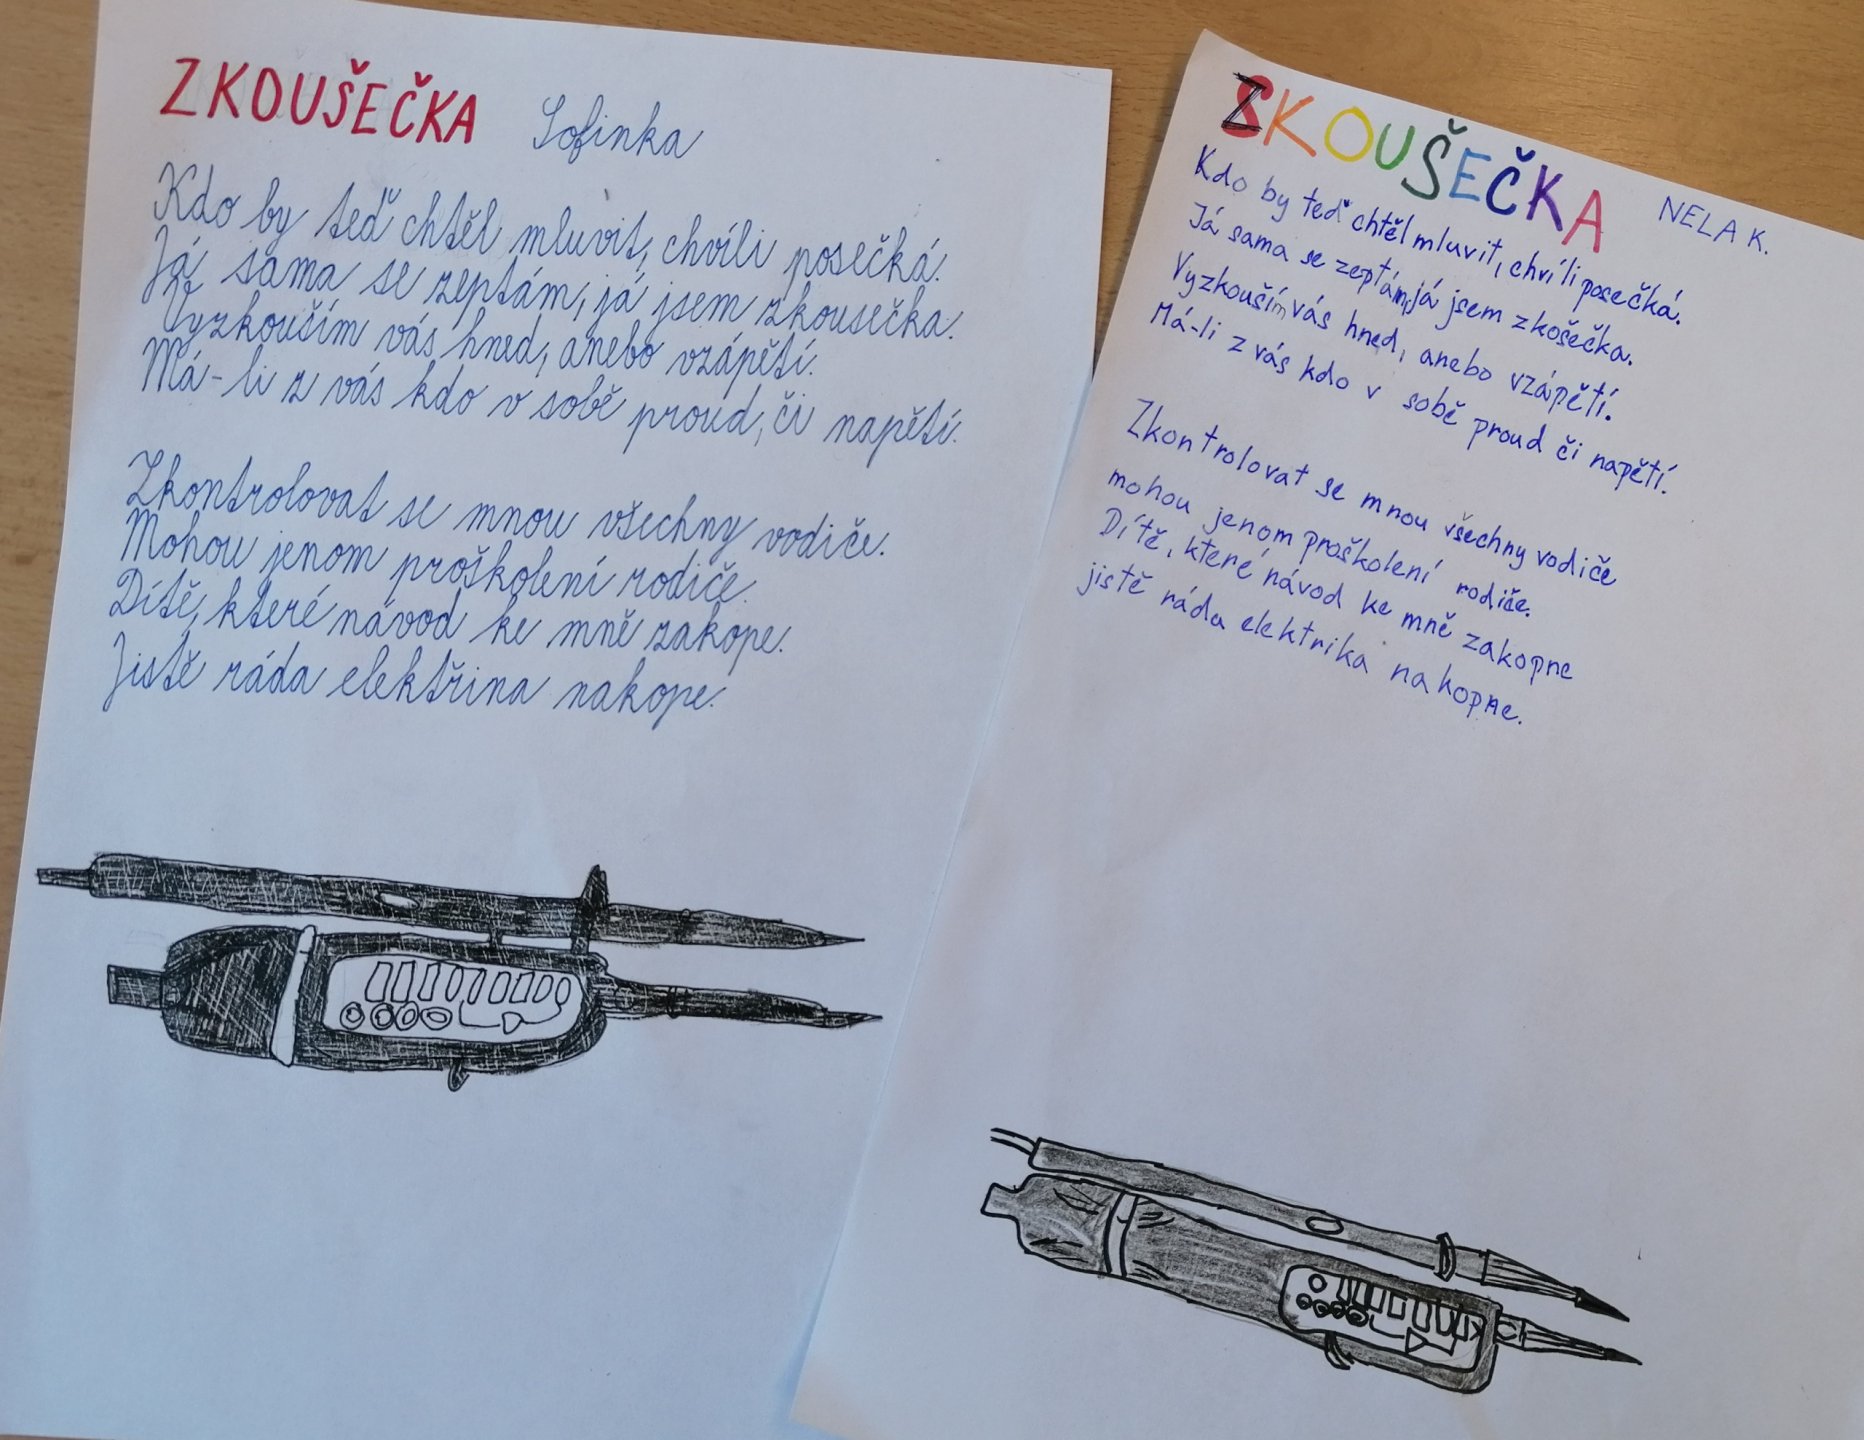 ZKOUŠEČKA Sofinka
Kdo by teď chtěl mluvit, chvíli posečká.
Já sama se zeptám, já jsem zkousečka.
Vyzkouším vás hned, anebo vzápětí.
Má-li z vás kdo v sobě proud, či napětí.
Zkontrolovat se mnou všechny vodiče.
Mohou jenom proškolení rodiče.
Dítě, které návod ke mně zakope.
Jistě ráda elektřina nakope.
ZKOUŠEČKA NELA K.
Kdo by teď chtěl mluvit, chvíli posečká.
Já sama se zeptám, já jsem zkošečka.
Vyzkouším vás hned, anebo vzápětí.
Má-li z vás kdo v sobě proud či napětí.
Zkontrolovat se mnou všechny vodiče
mohou jenom proškolení rodiče.
Dítě, které návod ke mně zakopne
jistě ráda elektrika nakopne.